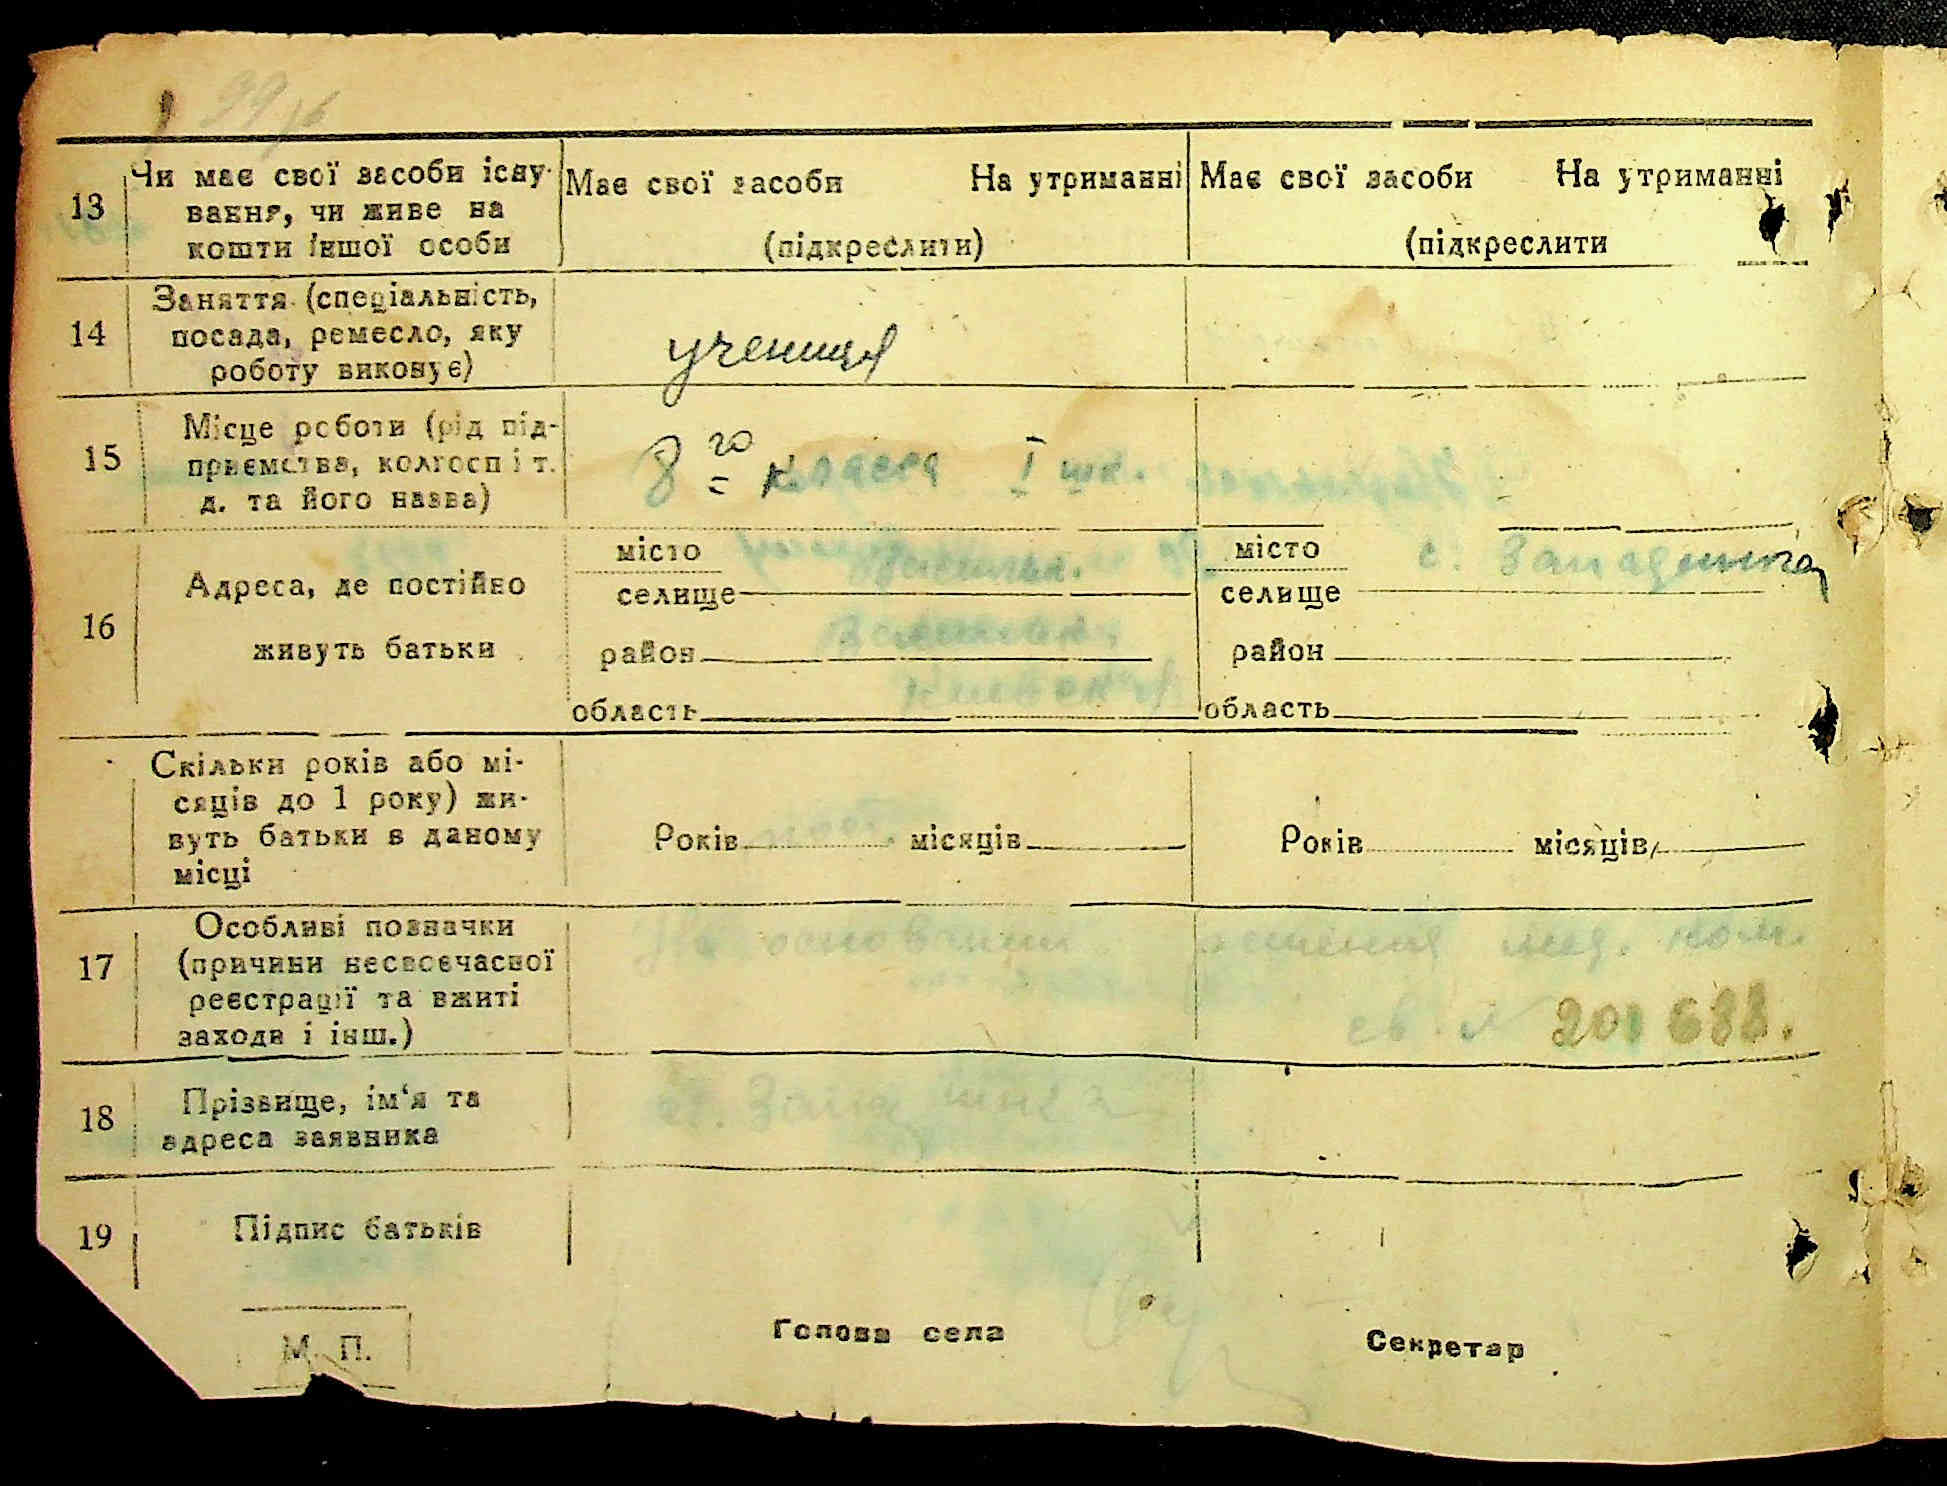 99 зв
13 Чи має свої засоби існу-
вання, чи живе на
кошти іншої особи
Має свої засоби На утриманні
(підкреслити)
Має свої засоби На утриманні
(підкреслити
14 Заняття (спеціальність,
посада, ремесло, яку
роботу виконує)
учениця
15 Місце роботи (рід під-
приємства, колгосп і т.
д. та його назва)
8го класса I шк.
16 Адреса, де постійно
живуть батьки
місто
селище
район
область
місто с. Западинка
селище
район
область
Скільки років або мі-
сяців до 1 року) жи-
вуть батьки в даному
місці
Років місяців
Років місяців
17 Особливі позначки
(причини несвоєчасної
реєстрації та вжиті
заходи і інш.)
На основании решения мед. ком.
св. № 201688.
18 Прізвище, ім'я та
адреса заявника
с. Западинка
19 Підпис батьків
М. П.
Голова села
Секретар